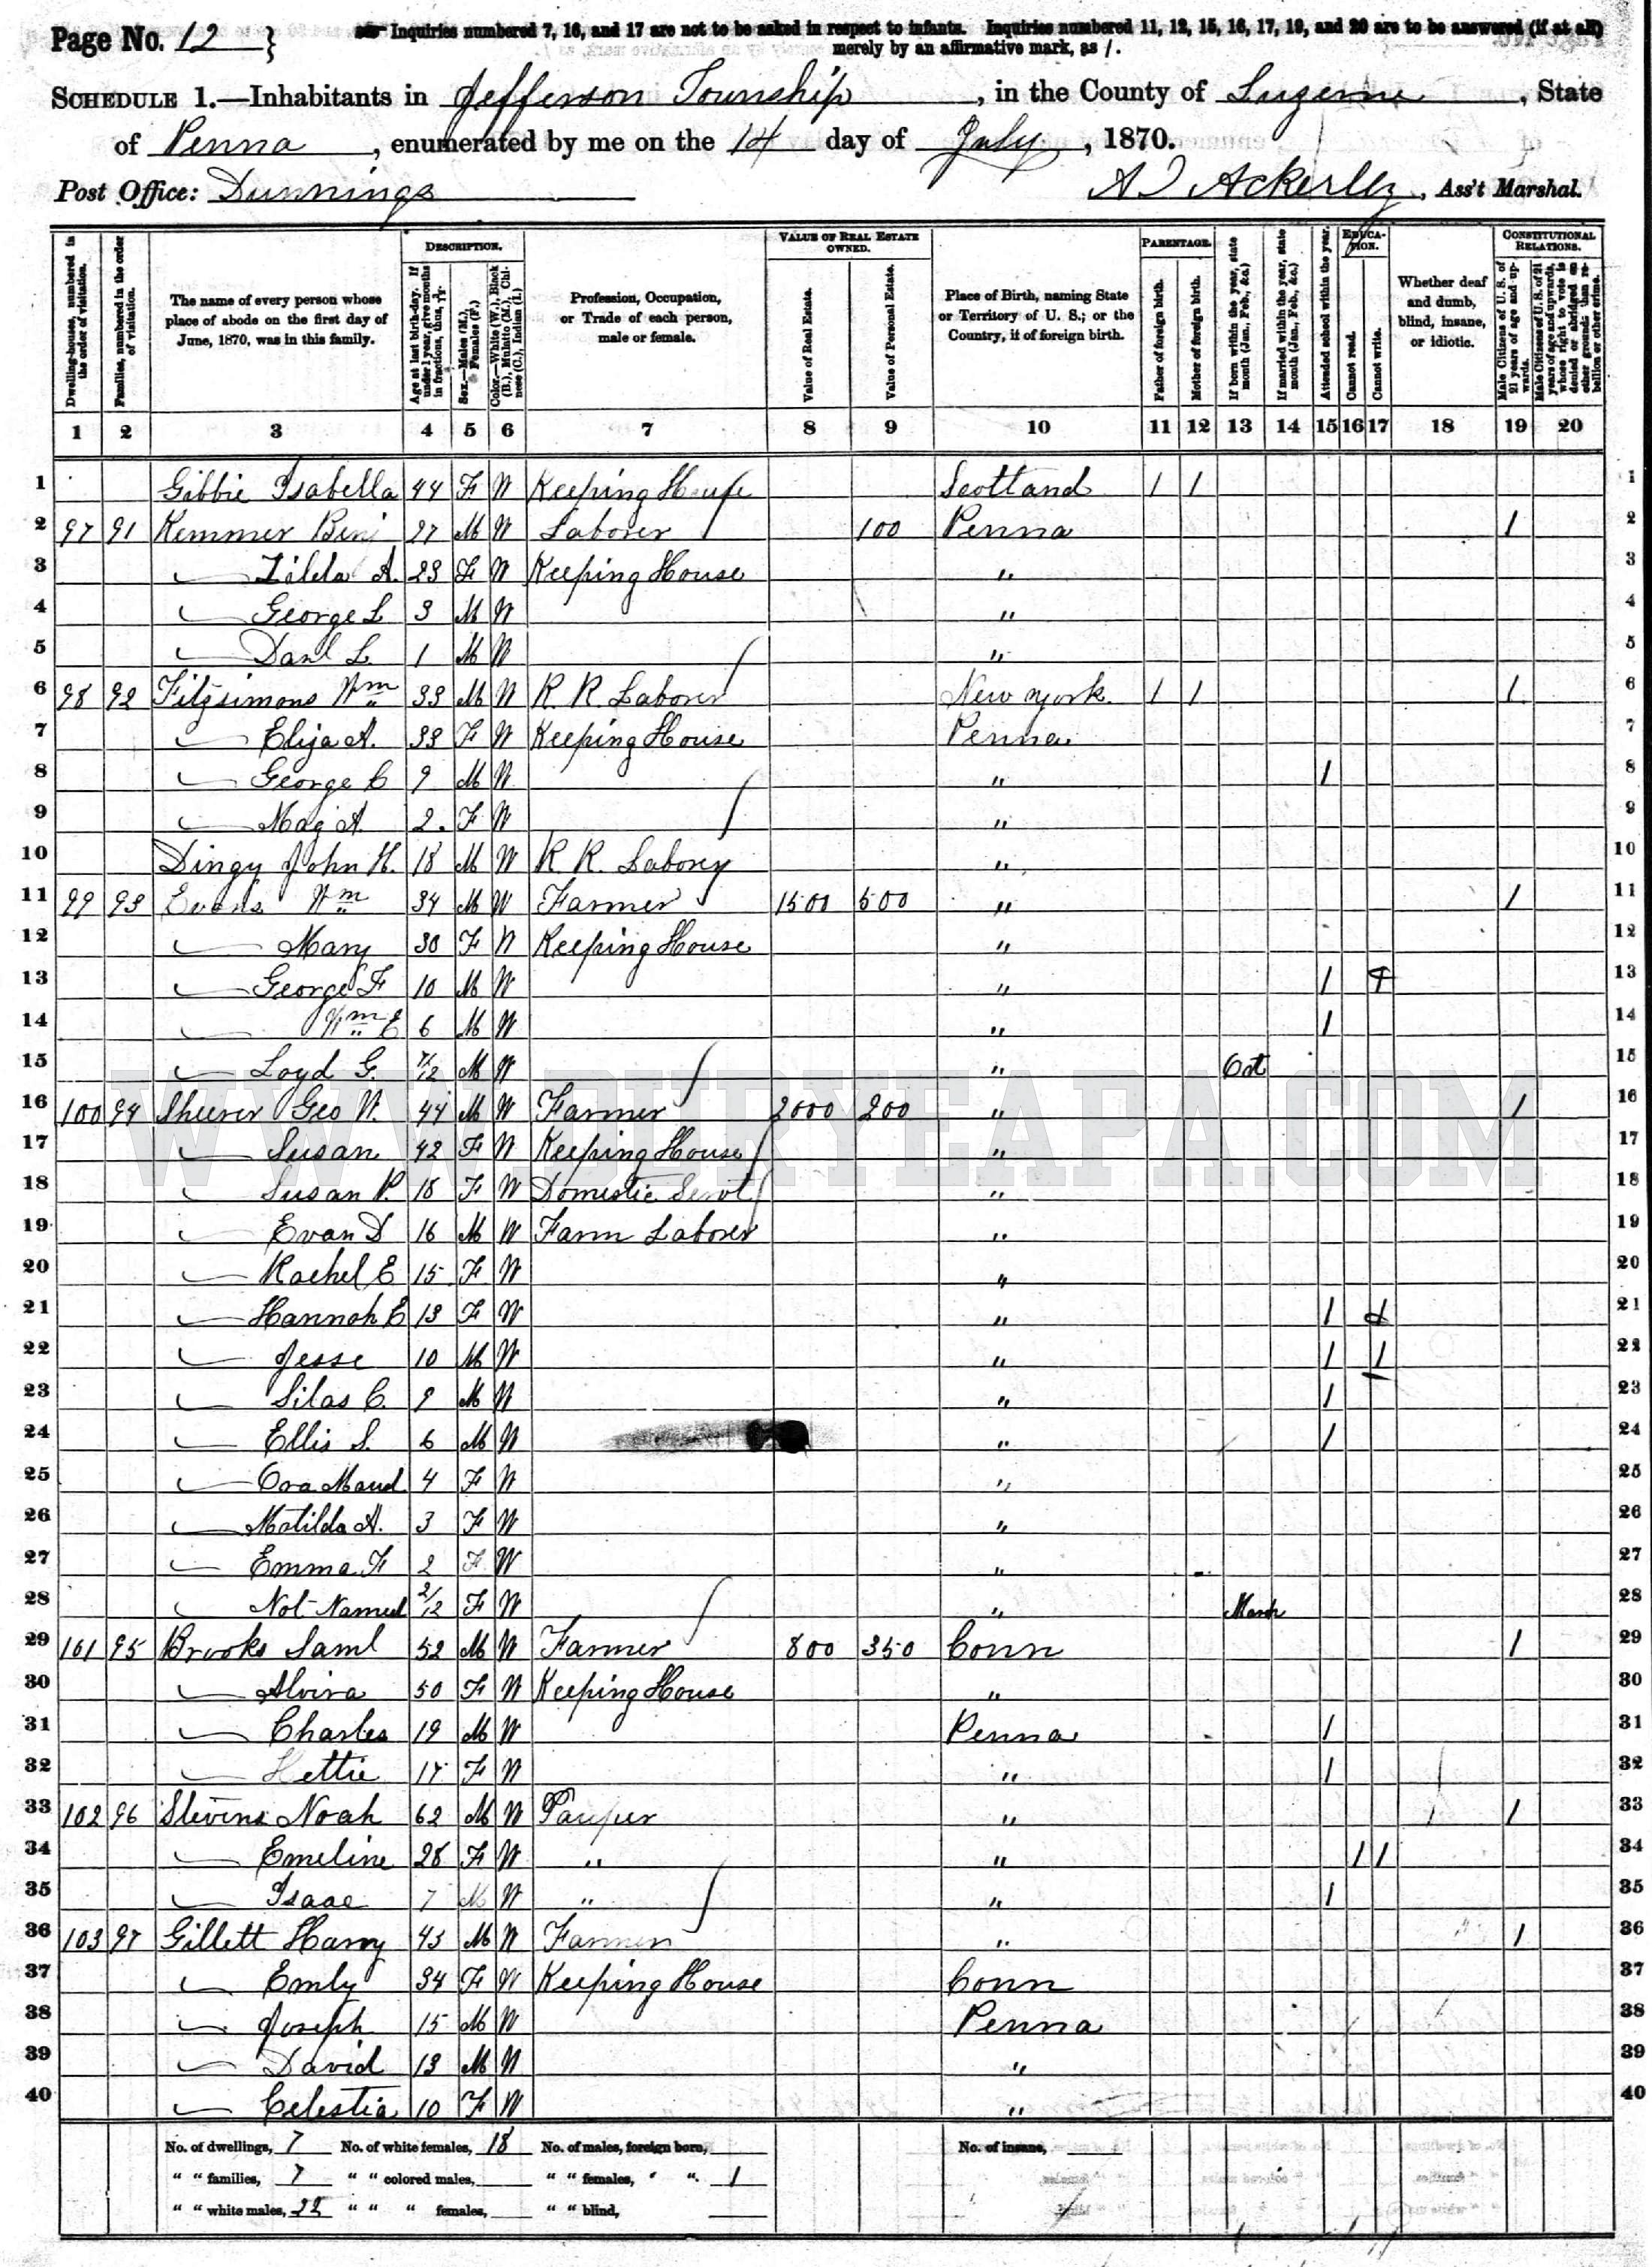 Page No. 12 }
Inquiries numbered 7, 16, and 17 are not to be asked in respect to infants. Inquiries numbered 11, 12, 15, 16, 17, 19, and 20 are to be answered (if at all)
merely by an affirmative mark, as /.
SCHEDULE 1.—Inhabitants in Jefferson Township, in the County of Luzerne, State
of Penna, enumerated by me on the 14 day of July, 1870.
Post Office: Dunnings
Ackerley, Ass't Marshal.
Dwelling-houses, numbered in the order of visitation.
Families, numbered in the order of visitation.
The name of every person whose place of abode on the first day of June, 1870, was in this family.
DESCRIPTION.
Age at last birth-day. If under 1 year, give months in fractions, thus,
Sex.—Males (M.), Females (F.)
Color.—White (W.), Black (B.), Mulatto (M.), Chinese (C.), Indian (I.)
Profession, Occupation, or Trade of each person, male or female.
VALUE OF REAL ESTATE OWNED.
Value of Real Estate.
Value of Personal Estate.
Place of Birth, naming State or Territory of U. S.; or the Country, if of foreign birth.
PARENTAGE.
Father of foreign birth.
Mother of foreign birth.
If born within the year, state month (Jan., Feb., &c.)
If married within the year, state month (Jan., Feb., &c.)
Attended school within the year.
EDUCATION.
Cannot read.
Cannot write.
Whether deaf and dumb, blind, insane, or idiotic.
CONSTITUTIONAL RELATIONS.
Male Citizens of U. S. of 21 years of age and upwards.
Male Citizens of U. S. of 21 years of age and upwards, whose right to vote is denied or abridged on other grounds than rebellion or other crime.
1 2 3 4 5 6 7 8 9 10 11 12 13 14 15 16 17 18 19 20
1 Gibbie Isabella 44 F W Keeping House Scotland 1 1 1
2 97 91 Kemmer Benj 27 M W Laborer 100 Penna 1 2
3 A. 23 F W Keeping House " 3
4 George L 3 M W " 4
5 Danl L. 1 M W " 5
6 98 92 Fitzsimons Wm 33 M W R. R. Laborer New York 1 1 1 6
7 Eliza A. 33 F W Keeping House Penna 7
8 George C 9 M W " 1 8
9 Mag A. 2 F W " 9
10 Dingy John H. 18 M W R R. Laborer " 10
11 99 93 Evans Wm 34 M W Farmer 1500 500 " 1 11
12 Mary 30 F W Keeping House " 12
13 George F 10 M W " 1 13
14 Wm E 6 M W " 1 14
15 Loyd G. /12 M W " Oct 15
16 100 94 Sheerer Geo W. 44 M W Farmer 2000 200 " 1 16
17 Susan 42 F W Keeping House " 17
18 Susan P. 18 F W Domestic Servt " 18
19 Evan D 16 M W Farm Laborer " 19
20 Rachel E 15 F W " 20
21 Hannah E 13 F W " 1 21
22 Jesse 10 M W " 1 1 22
23 Silas C. 9 M W " 1 23
24 Ellis S. 6 M W " 1 24
25 Ora Maud 4 F W " 25
26 Matilda A. 3 F W " 26
27 Emma F 2 F W " 27
28 Not Named 2/12 F W " March 28
29 101 95 Brooks Saml 52 M W Farmer 800 350 Conn 1 29
30 Alvira 50 F W Keeping House " 30
31 Charles 19 M W Penna 1 31
32 Hettie 17 F W " 1 32
33 102 96 Stevens Noah 62 M W Pauper " 1 33
34 Emeline 28 F W " " 1 1 34
35 Isaac 7 M W " " 1 35
36 103 97 Gillett Harry 43 M W Farmer " 1 36
37 Emly 34 F W Keeping House Conn 37
38 Joseph 15 M W Penna 38
39 David 13 M W " 39
40 Celestia 10 F W " 40
WWW.DURYEAPA.COM
No. of dwellings, 7 No. of white females, 18 No. of males, foreign born, No. of insane,
" " families, 7 " " colored males, " " females, " ". 1
" " white males, 22 " " " females, " " blind,